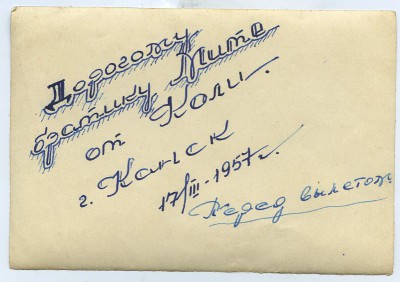 Дорогому
братику Мите
от Коли.
г. Канск
17/III-1957 г.
Перед вылетом